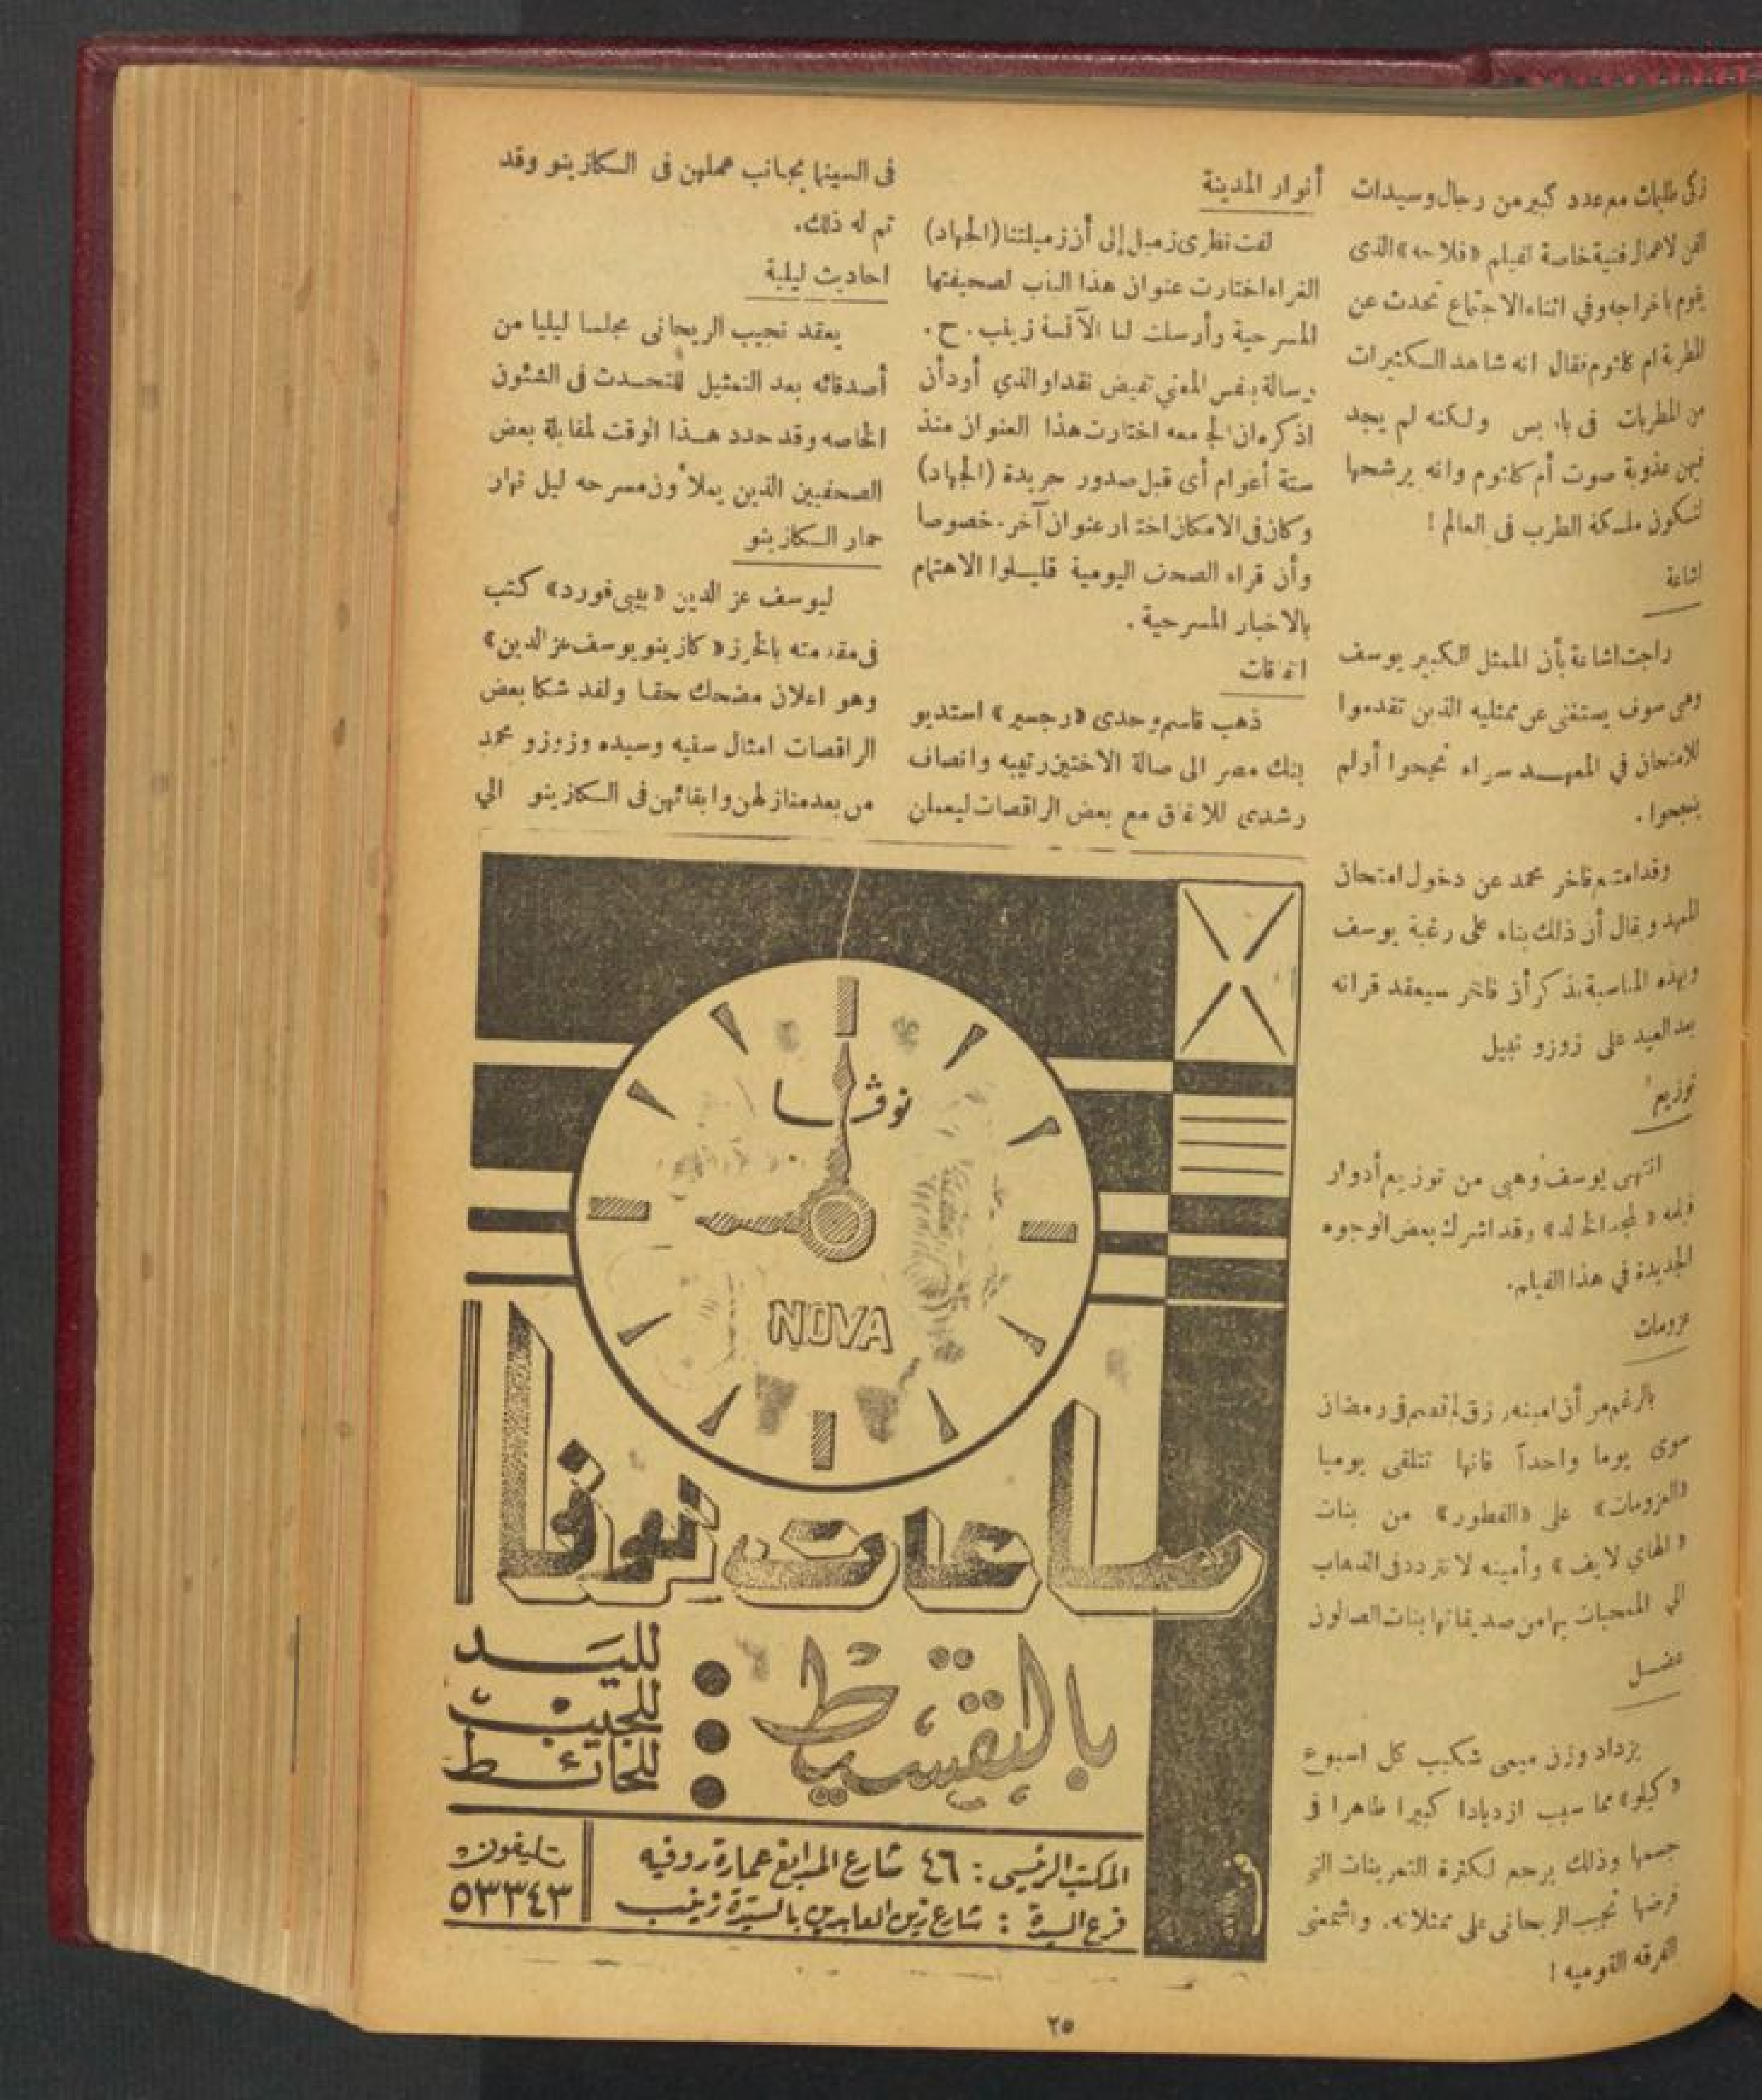 زكى طلبات مع عدد كبير من رجال وسيدات
الفن لاعمال فنية خاصة لفيلم «فلاحه» الذى
يقوم باخراجه وفي اثناء الاجتماع تحدث عن
المطربة ام كلثوم فقال انه شاهد الكثيرات
من المطربات فى باريس ولكنه لم يجد
فيهن عذوبة صوت أم كلثوم وانه يرشحها
لتكون ملكة الطرب فى العالم !
اشاعة
راجت اشاعة بأن الممثل الكبير يوسف
وهبى سوف يستغنى عن ممثليه الذين تقدموا
للامتحان في المعهد سواء نجحوا أو لم
ينجحوا .
وقد امتنع فاخر محمد عن دخول امتحان
المعهد ويقال أن ذلك بناء على رغبة يوسف
وبهذه المناسبة نذكر أن فاخر سيعقد قرانه
بعد العيد على زوزو نبيل
توزيع
انتهى يوسف وهبى من توزيع أدوار
فيلمه « المجد الخالد » وقد اشرك بعض الوجوه
الجديدة في هذا الفيلم.
عزومات
بالرغم من أن امينه رزق لم تصم فى رمضان
سوى يوما واحداً فانها تتلقى يوميا
«العزومات» على «الفطور» من بنات
« الهاي لايف » وأمينه لا تتردد فى الذهاب
الي المعجبات بها من صديقاتها بنات الصالون
عضل
يزداد وزن ميمى شكيب كل اسبوع
« كيلو » مما سبب ازديادا كبيرا ظاهرا فى
جسمها وذلك يرجع لكثرة التمرينات التى
فرضها نجيب الريحانى على ممثلاته. واشمعنى
الفرقه القوميه !
أنوار المدينة
لفت نظرى زميل إلى أن زميلتنا (الجهاد)
الغراء اختارت عنوان هذا الباب لصحيفتها
المسرحية وأرسلت لنا الآنسة زينب . ح .
رسالة بنفس المعني تفيض نقدا والذي أود أن
اذكره ان الجامعه اختارت هذا العنوان منذ
ستة أعوام أى قبل صدور جريدة (الجهاد)
وكان فى الامكان اختيار عنوان آخر. خصوصا
وأن قراء الصحف اليومية قليلوا الاهتمام
بالاخبار المسرحية .
اتفاقات
ذهب قاسم وجدى «رجسير» استديو
بنك مصر الى صالة الاختين رتيبه وانصاف
رشدى للاتفاق مع بعض الراقصات ليعملن
فى السينما بجانب عملهن فى الكازينو وقد
تم له ذلك.
احاديث ليلية
يعقد نجيب الريحانى مجلسا ليليا من
أصدقائه بعد التمثيل للتحدث فى الشئون
الخاصه وقد حدد هذا الوقت لمقابلة بعض
الصحفيين الذين يملأون مسرحه ليل نهار
حمار الكازينو
ليوسف عز الدين «بيبى فورد» كتب
فى مقدمته بالخرز « كازينو يوسف عز الدين »
وهو اعلان مضحك حقا ولقد شكا بعض
الراقصات امثال سفيه وسيده وزوزو محمد
من بعد منازلهن وابقائهن فى الكازينو الي
نوڤا
NOVA
ساعات نوفا
بالتقسيط
لليد
للجيب
للحائط
المكتب الرئيسى : ٤٦ شارع المدابغ عمارة روفيه
فرع السيدة : شارع زين العابدين بالسيدة زينب
تليفون
٥٣٣٤٣
٢٥